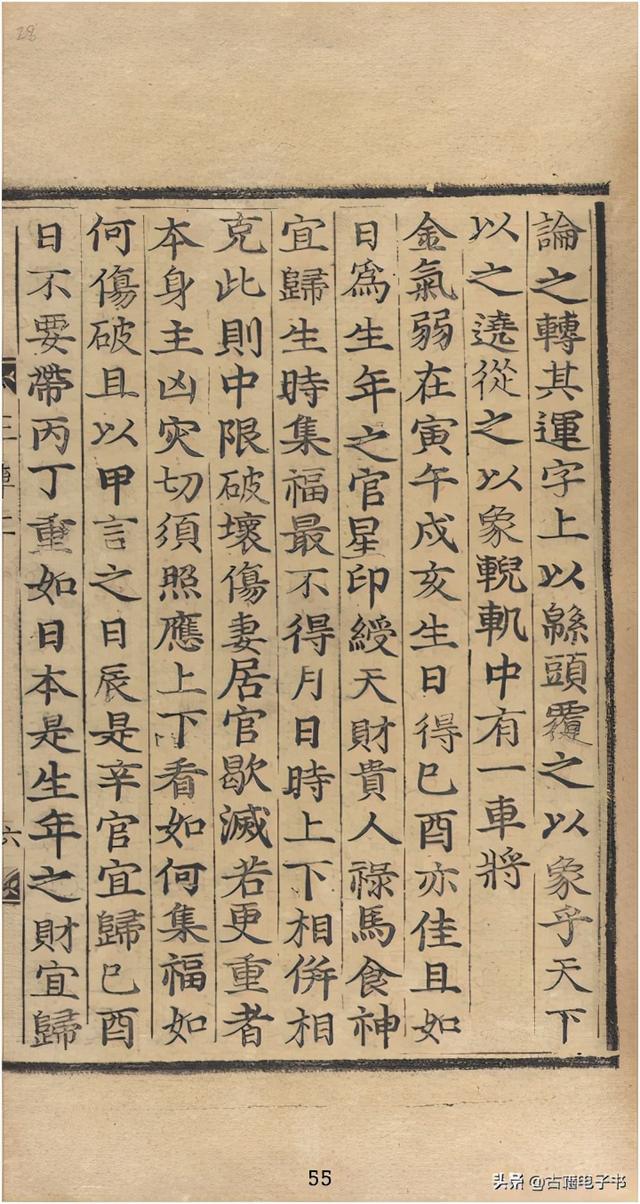 28
論之轉其運字上以緜頭覆之以象乎天下
以之遶從之以象輗軏中有一車將
金氣弱在寅午戍亥生日得巳酉亦佳且如
日爲生年之官星印綬天財貴人祿馬食神
宜歸生時集福最不得月日時上下相併相
克此則中限破壞傷妻居官歇滅若更重者
本身主凶灾切須照應上下看如何集福如
何傷破且以甲言之日辰是辛官宜歸巳酉
日不要帶丙丁重如日本是生年之財宜歸
六
55
头条 @古籍电子书